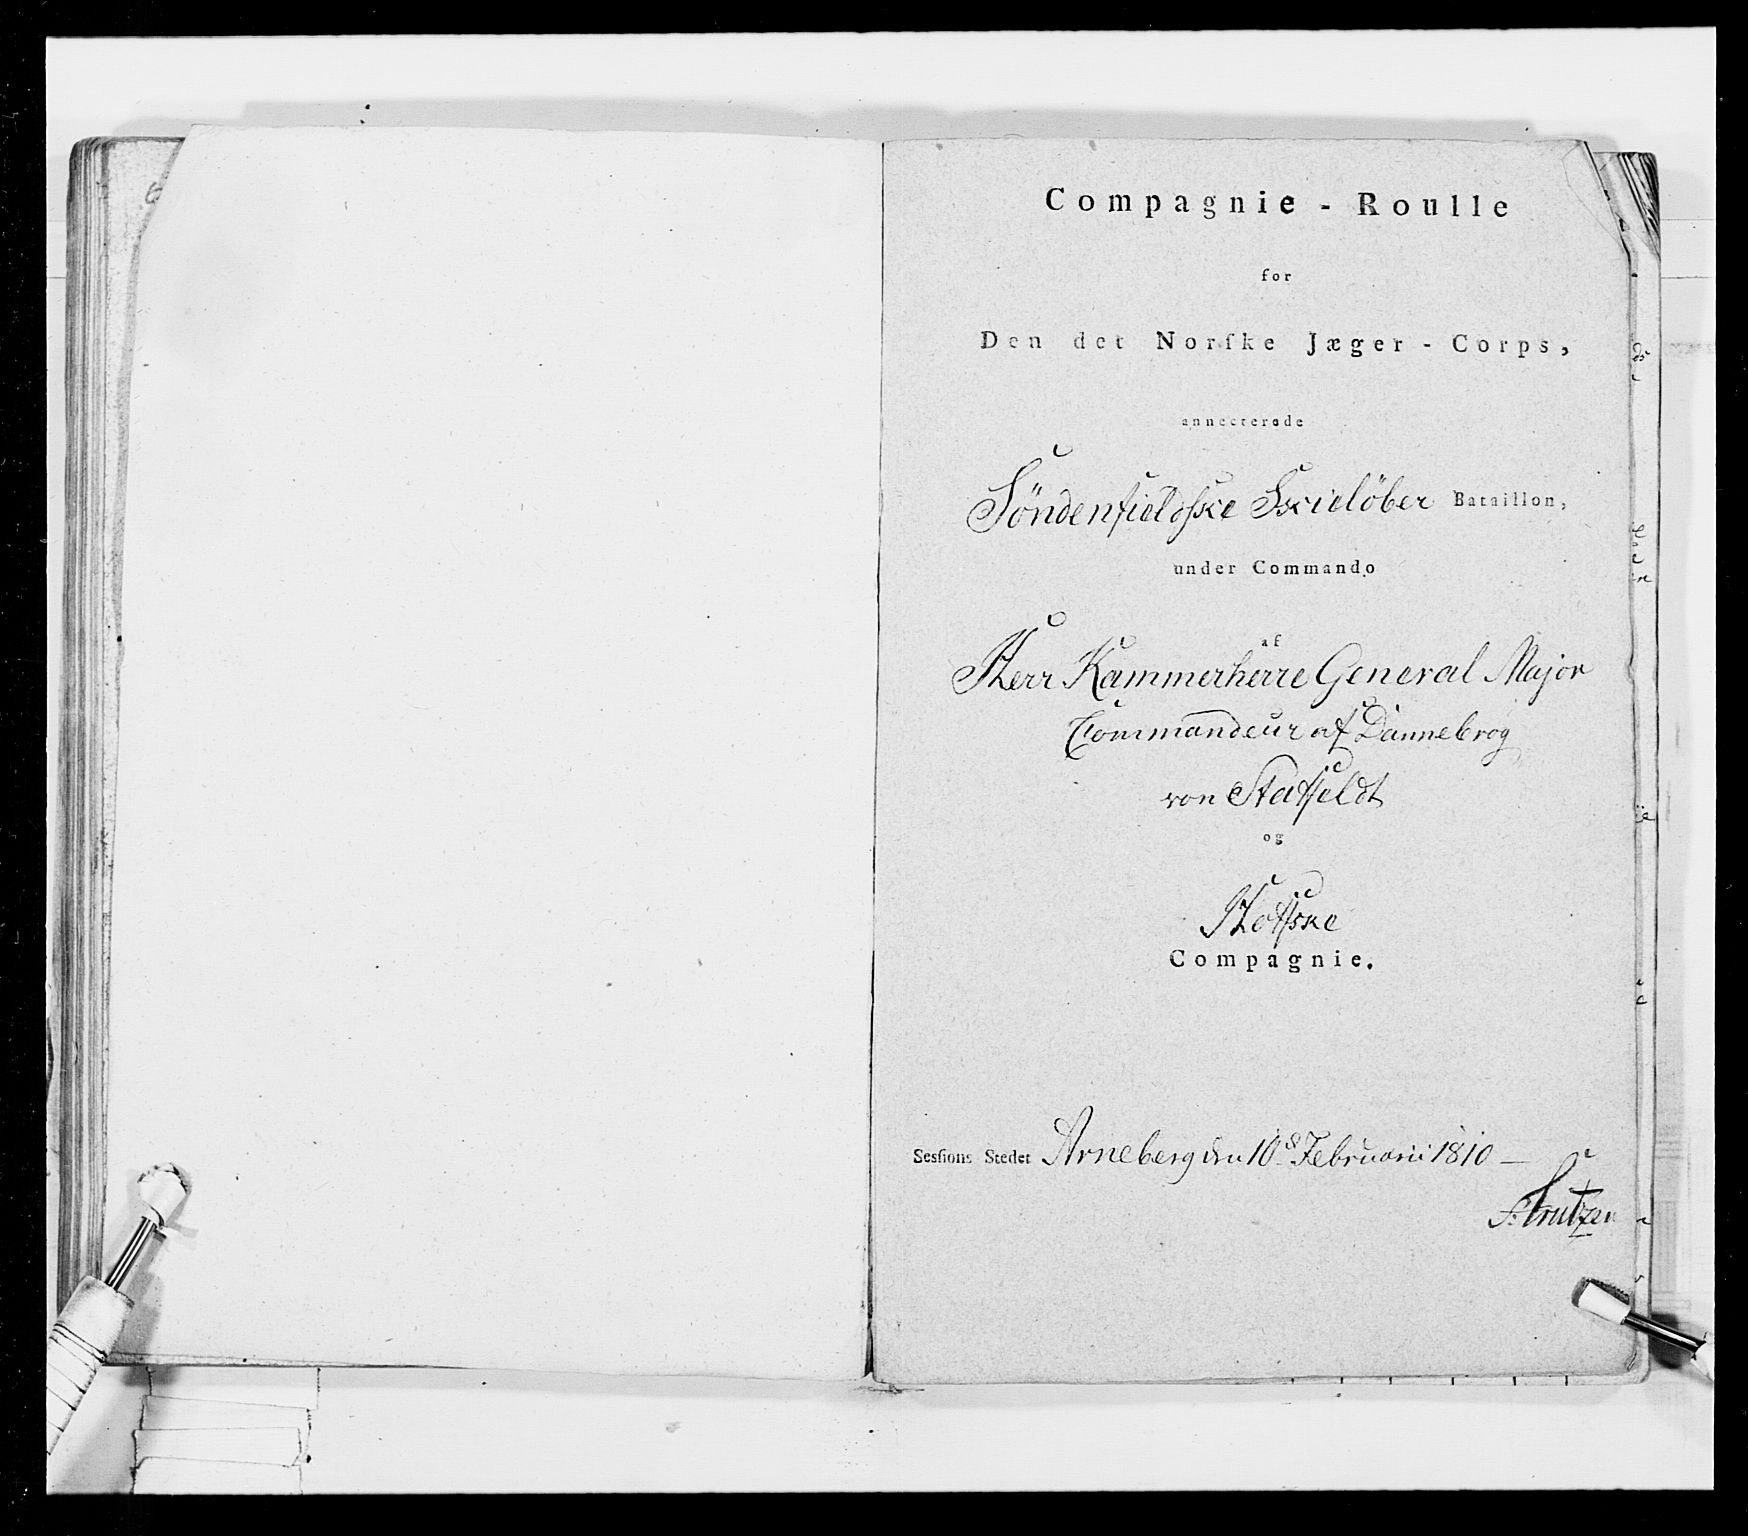 Compagnie - Roulle
for
Den det Norſke Jæger - Corps,
annecterede
Söndenfieldſke Skielöber Bataillon,
under Commando
af
Herr Kammerherre General Major
Commandeur af Dannebrog
von Staffeldt
og
Compagnie.
Sesſions Stedet Arneberg den 10d Februarii 1810 —